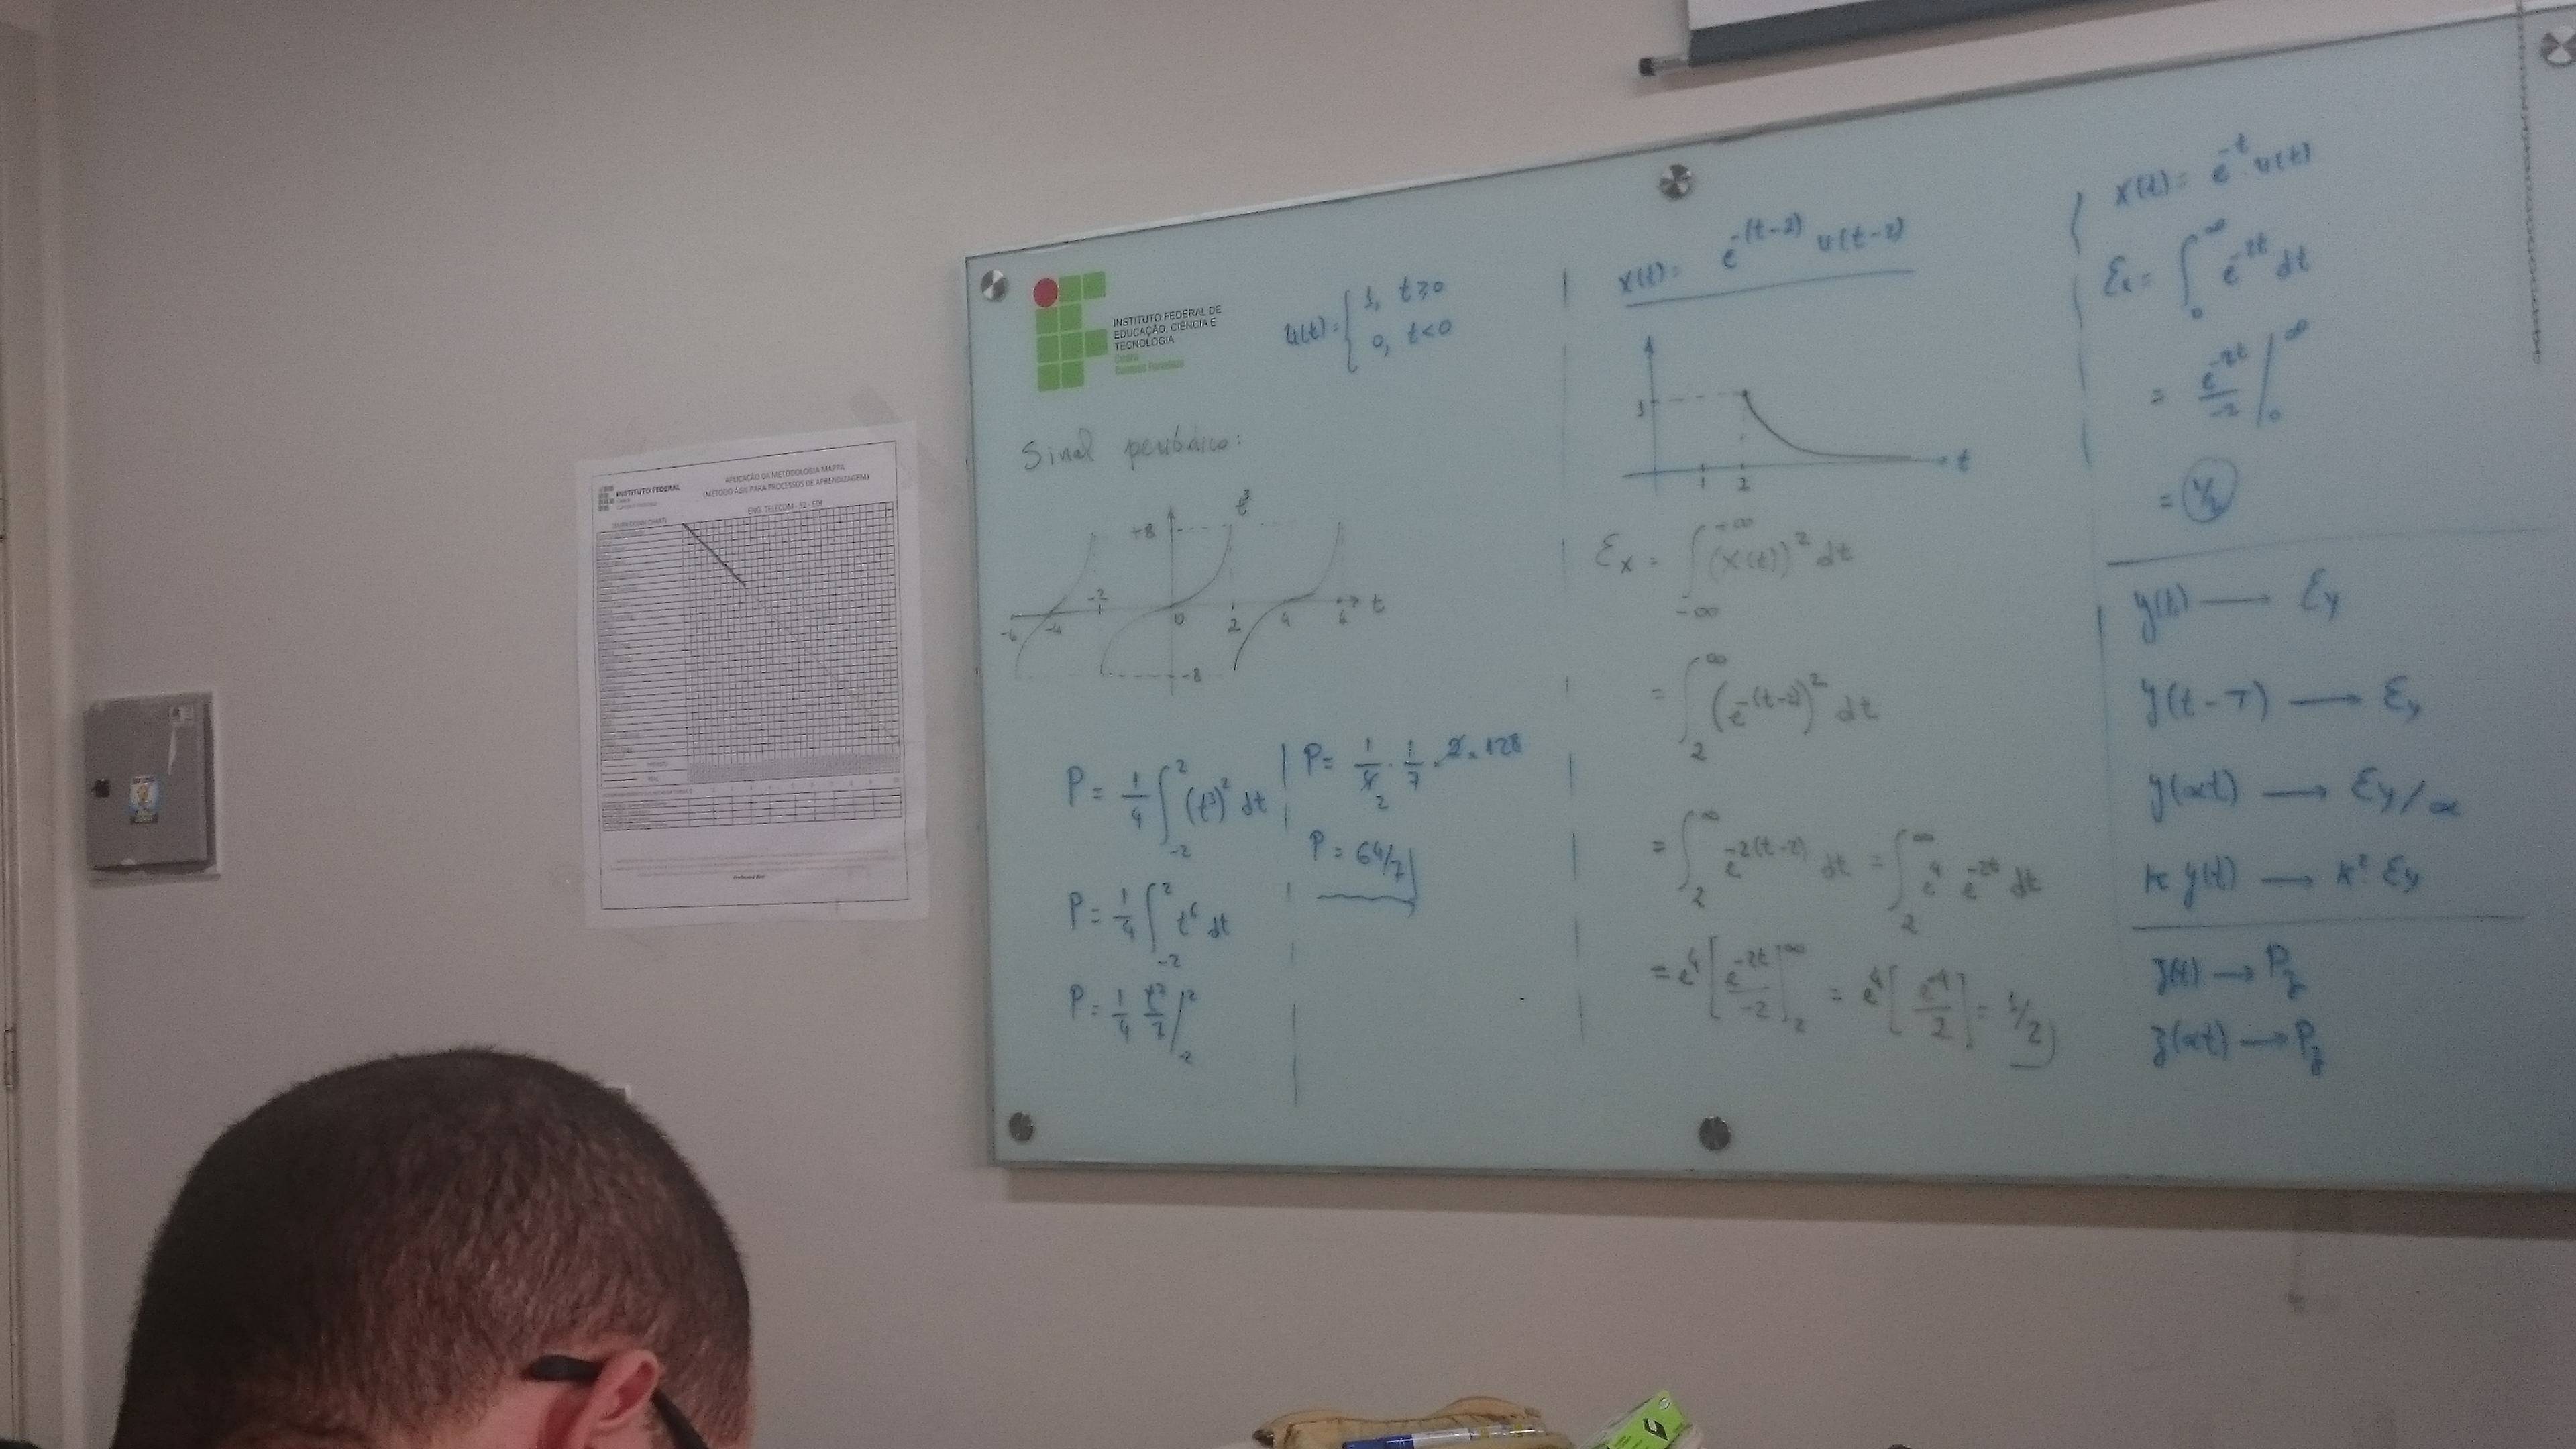 INSTITUTO FEDERAL
APLICAÇÃO DA METODOLOGIA MAPPA
(MÉTODO ÁGIL PARA PROCESSOS DE APRENDIZAGEM)
ENG. TELECOM - S2 -
INSTITUTO FEDERAL DE
EDUCAÇÃO, CIÊNCIA E
TECNOLOGIA
Ceará
Campus Fortaleza
u(t) = { 1, t ≥ 0
0, t < 0
Sinal periódico:
+8
t³
-6 -4 -2 0 2 4 6 t
-8
P = 1/4 ∫_{-2}^{2} (t³)² dt
P = 1/4 ∫_{-2}^{2} t⁶ dt
P = 1/4 t⁷/7 |_{-2}^{2}
P = 1/4 . 1/7 . 2 . 128
2
P = 64/7
x(t) = e^{-(t-2)} u(t-2)
1
1 2 t
Ex = ∫_{-∞}^{+∞} (x(t))² dt
= ∫_{2}^{∞} (e^{-(t-2)})² dt
= ∫_{2}^{∞} e^{-2(t-2)} dt = ∫_{2}^{∞} e⁴ e^{-2t} dt
= e⁴ [e^{-2t}/-2]_{2}^{∞} = e⁴ [e^{-4}/2] = 1/2
x(t) = e^{-t} . u(t)
Ex = ∫_{0}^{∞} e^{-2t} dt
= e^{-2t}/-2 |_{0}^{∞}
= 1/2
y(t) → Ey
y(t-T) → Ey
y(αt) → Ey/α
k y(t) → k² . Ey
z(t) → Pz
z(αt) → Pz